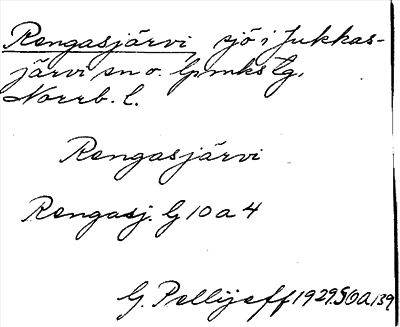 Rengasjärvi, sjö i Jukkas-
järvi sn o. lpmks tg,
Norrb. l.
Rengasjärvi
Rengasj. G 10 a 4
G. Pellijeff 1929. SOA 139